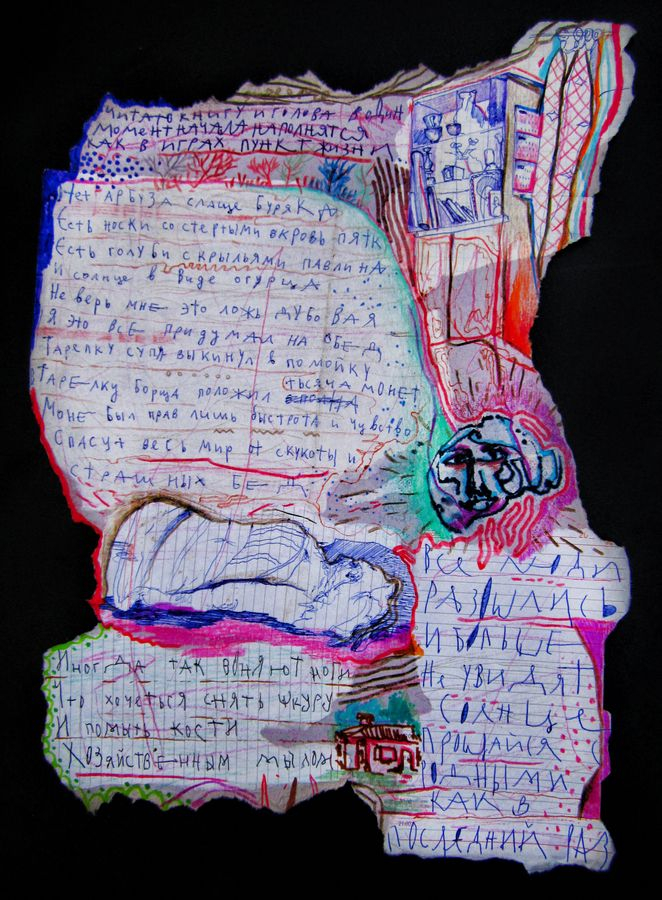 ЧИТАТО КНИГУ И ГОЛОВА В ОДИН
МОМЕНТ НАЧАЛА НАПОЛНЯТСЯ
КАК В ИГРАХ ПУНКТ ЖИЗНИ
Нет АРБУЗА СЛАЩЕ БУРЯКА
Есть носки со стертыми в кровь пятк
Есть голуби с крыльями павлина
И солнце в виде огурца
Не верь мне это ложь дубовая
Я это все придумал на обед
Тарелку супа выкинул в помойку
Тарелку борща положил тысяча монет
Моне был прав лишь быстрота и чувство
Спасут весь мир от скукоты и
страшных бед
Иногда так воняют ноги
Что хочеться снять шкуру
И помыть кости
Хозяйственным мылом
ВСЕ ЛЮДИ
РАЗОШЛИСЬ
И БОЛЬШЕ
Не УВИДЯТ
СОЛНЦЕ
ПРОЩАЙСЯ С
РОДНЫМИ
КАК В
ПОСЛЕДНИЙ РАЗ